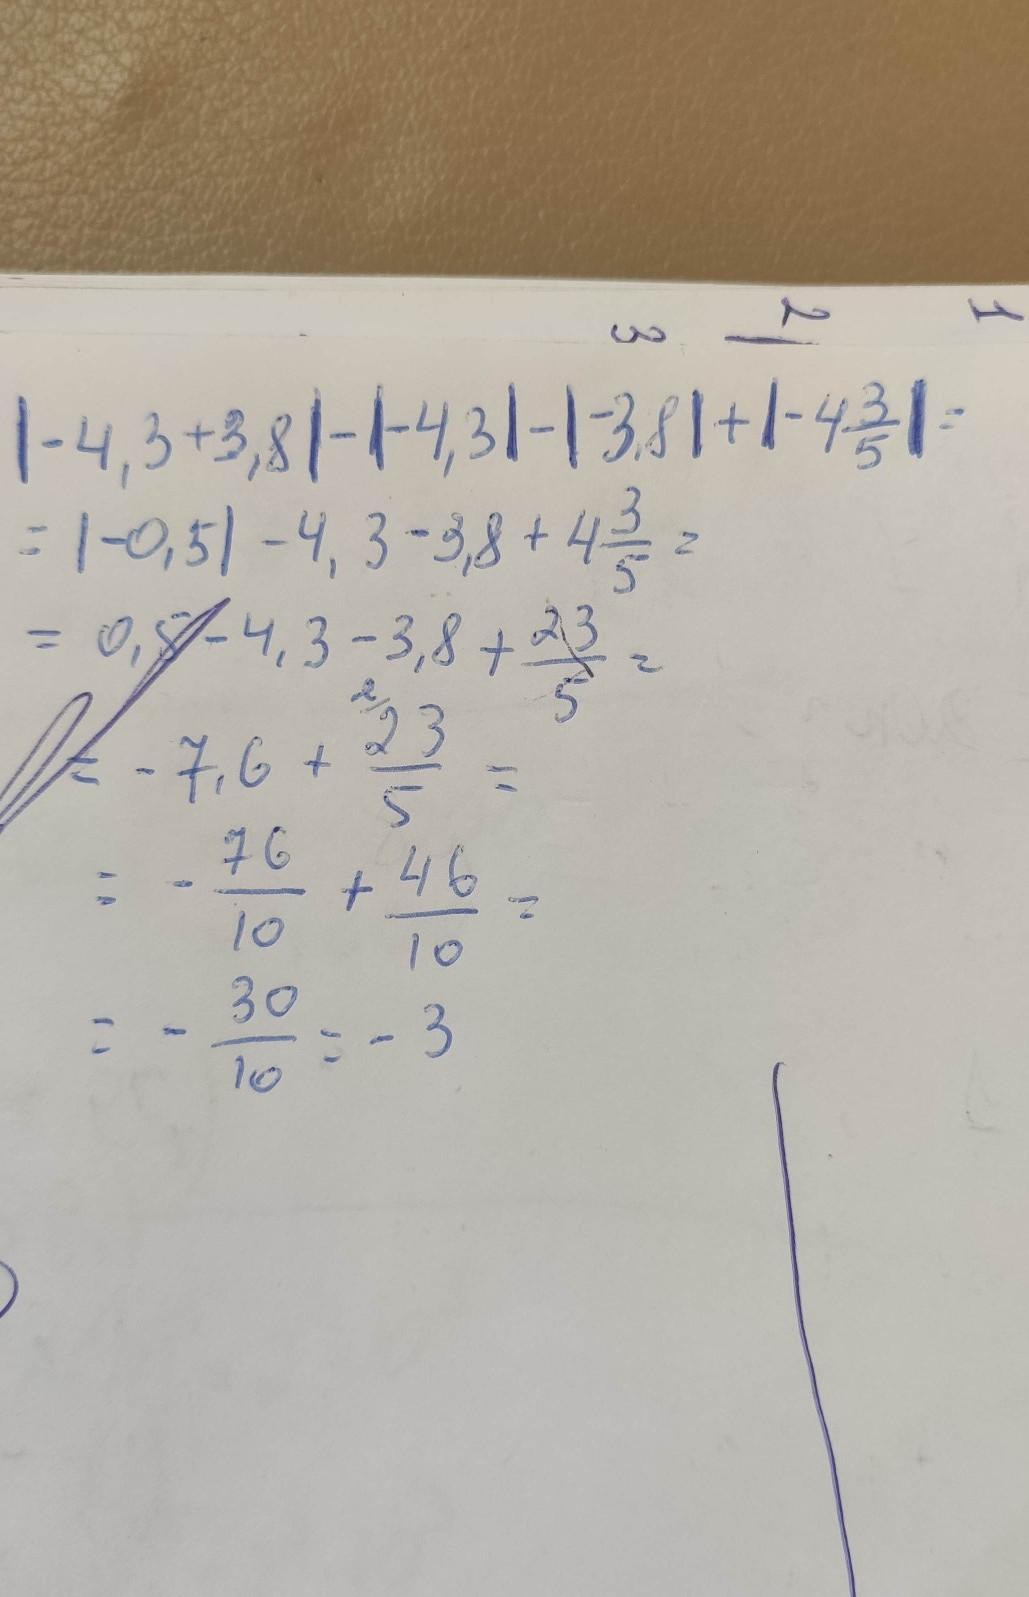 1 2 3
|-4,3+3,8|-|-4,3|-|-3,8|+|-4 3/5|=
=|-0,5|-4,3-3,8+4 3/5=
=0,5-4,3-3,8+23/5=
=-7,6+23/5=
=-76/10+46/10=
=-30/10=-3